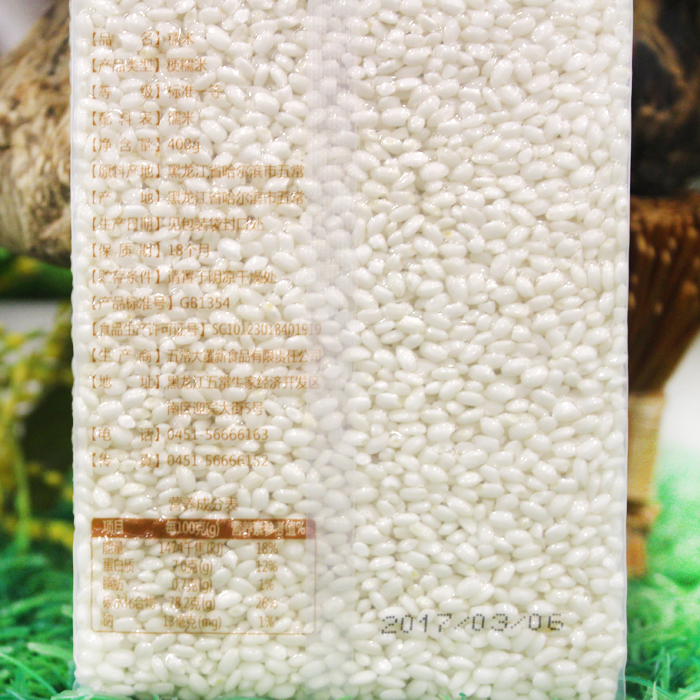 【品 名】糯米
【产品类型】粳糯米
【等 级】标准一等
【配 料 表】糯米
【净 含 量】400g
【原料产地】黑龙江省哈尔滨市五常
【产 地】黑龙江省哈尔滨市五常
【生产日期】见包装袋封口处
【保 质 期】18个月
【贮存条件】请置于阴凉干燥处
【产品标准号】GB1354
【食品生产许可证号】
【生 产 商】五常大 新食品有限责任公司
【地 址】黑龙江五常牛家经济开发区
南区迎宾大街5号
【电 话】0451-56666163
【传 真】0451-56666152
营养成分表
项目 每100克(g) 营养素参考值%
能量 18%
蛋白质 7.0克(g) 12%
脂肪 1%
碳水化合物 78.2克(g) 26%
钠 1%
2017/03/06